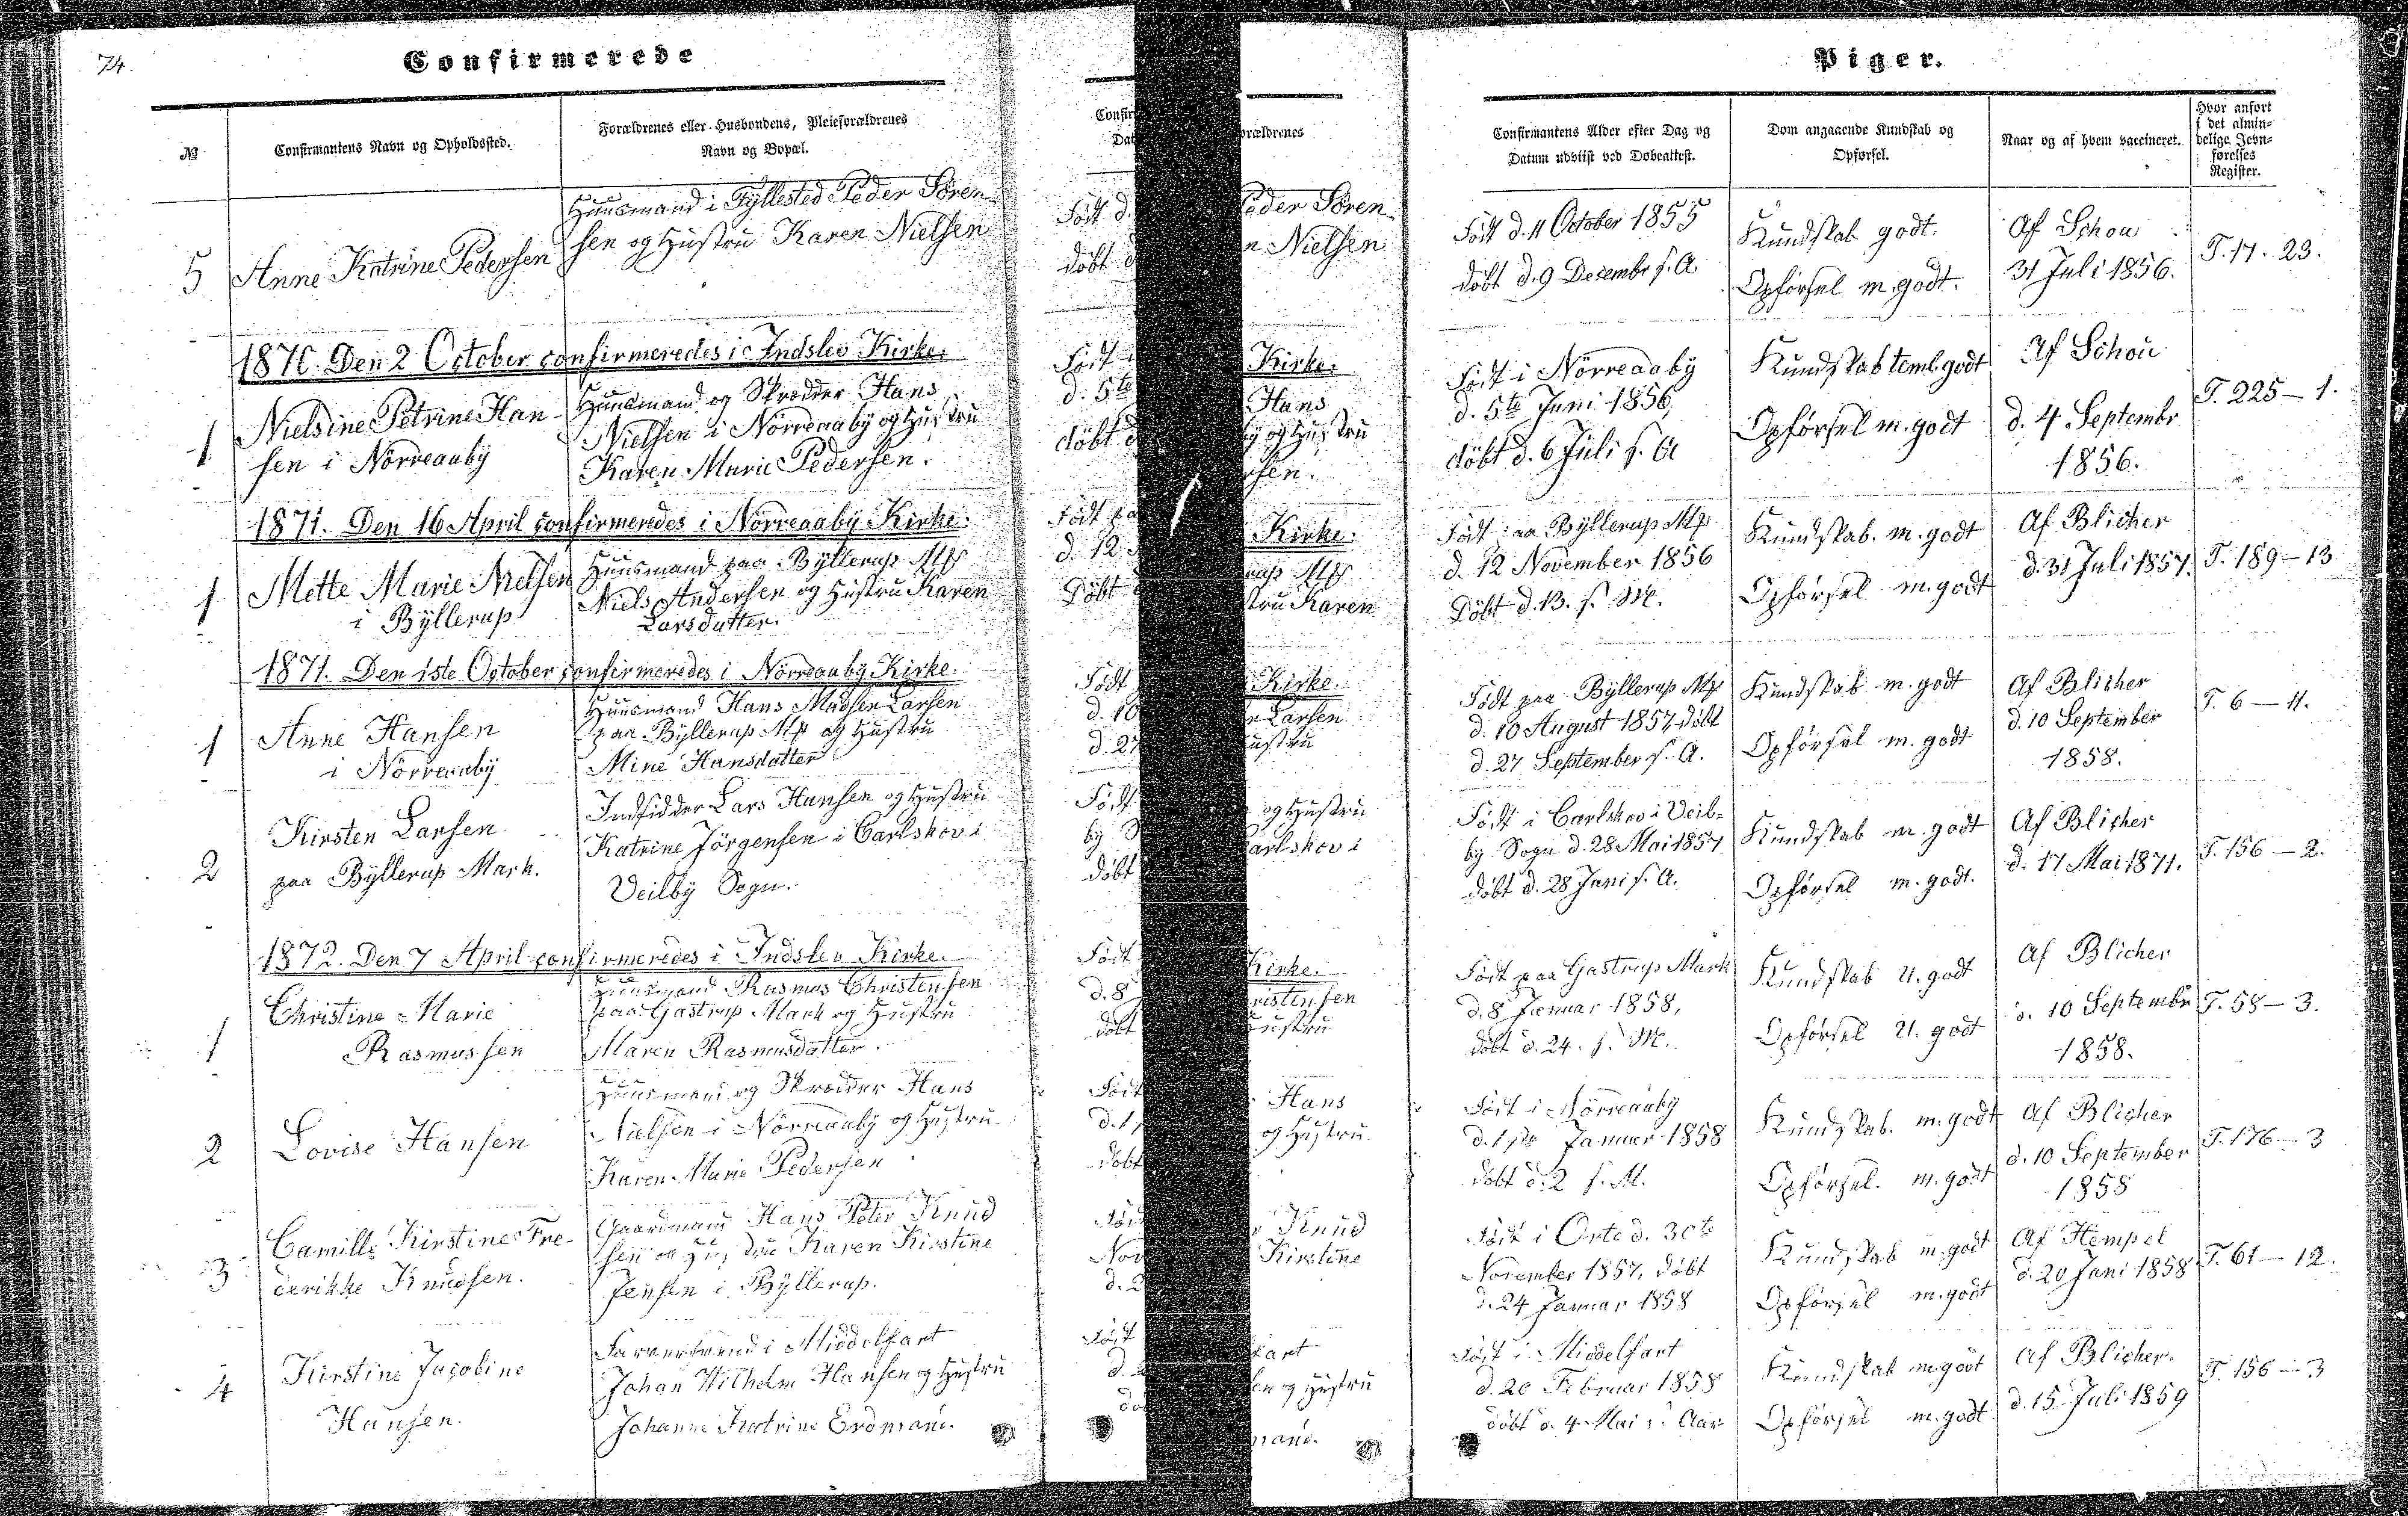 74.
Confirmerede
№
Confirmantens Navn og Opholdssted.
Forældrenes eller Husbondens, Pleieforældrenes
Navn og Bopæl.
5
Anne Katrine Pedersen
Huusmand i Fyllested Peder Sören-
sen og Hustru Karen Nielsen
1870. Den 2 October confirmeredes i Indslev Kirke.
1
Nielsine Petrine Han-
sen i Nörreaaby
Huusmand og Skrædder Hans
Nielsen i Nörreaaby og Hustru
Karen Marie Pedersen.
1871. Den 16 April confirmeredes i Nörreaaby Kirke.
1
Mette Marie Nielsen
i Byllerup
Huusmand paa Byllerup Mk
Niels Andersen og Hustru Karen
Larsdatter.
1871. Den 1ste October confirmeredes i Nörreaaby Kirke.
1
Anne Hansen
i Nörreaaby
Huusmand Hans Madsen Larsen
paa Byllerup Mk og Hustru
Mine Hansdatter
2
Kirsten Larsen
paa Byllerup Mark.
Indsidder Lars Hansen og Hustru
Katrine Jörgensen i Carlskov i
Veilby Sogn.
1872. Den 7 April confirmeredes i Indslev Kirke.
1
Christine Marie
Rasmussen
Huusmand Rasmus Christensen
paa Gastrup Mark og Hustru
Maren Rasmusdatter.
2
Lovise Hansen
Huusmand og Skrædder Hans
Nielsen i Nörreaaby og Hustru
Karen Marie Pedersen
3
Camilla Kirstine Fre-
derikke Knudsen.
Gaardmand Hans Peter Knud
sen og Hustru Karen Kirstine
Jensen i Byllerup.
4
Kirstine Jacobine
Hansen.
Farversvend i Middelfart
Johan Wilhelm Hansen og Hustru
Johanne Katrine Erdmand.
Piger.
Confirmantens Alder efter Dag og
Datum udviist ved Døbeattest.
Dom angaaende Kundskab og
Opførsel.
Naar og af hvem vaccineret.
Hvor anført
i det almin-
delige Jevn-
førelses
Register.
Født d. 11 October 1855
döbt d. 9 Decembr s. A.
Kundskab godt.
Opförsel m. godt.
Af Schou
31 Juli 1856.
T. 17. 23.
Født i Nörreaaby
d. 5te Juni 1856,
döbt d. 6 Juli s. A
Kundskab teml. godt
Opförsel m. godt
Af Schou
d. 4 Septembr
1856.
T. 225 - 1.
Født paa Byllerup Mk
d. 12 November 1856
Döbt d. 13. s. M.
Kundskab. m. godt
Opförsel m. godt
Af Blicher
d. 31 Juli 1857.
T. 189 - 13
Født paa Byllerup Mk
d. 10 August 1857, döbt
d. 27 September s. A.
Kundskab m. godt
Opförsel m. godt
Af Blicher
d. 10 September
1858.
T. 6 - 11.
Født i Carlskov i Veil-
by Sogn d. 28 Mai 1857
döbt d. 28 Juni s. A.
Kundskab m. godt
Opförsel m. godt.
Af Blicher
d. 17 Mai 1871.
T. 156 - 2.
Født paa Gastrup Mark
d. 8 Januar 1858,
döbt d. 24. s. M.
Kundskab u. godt
Opførsel u. godt
Af Blicher
d. 10 Septembr
1858.
T. 58 - 3.
Født i Nörreaaby
d. 1ste Januar 1858
döbt d. 2 s. M.
Kundskab. m. godt
Opförsel. m. godt
Af Blicher
d. 10 September
1858
T. 176 - 3
Født i Orte d. 30te
November 1857, döbt
d. 24 Januar 1858
Kundskab m. godt
Opförsel m. godt
Af Hempel
d. 20 Juni 1858
T. 61 - 12.
Født i Middelfart
d. 20 Februar 1858
döbt d. 4 Mai s. Aar
Kundskab m. godt
Opförsel m. godt
Af Blicher
d. 15 Juli 1859
T. 156 - 3